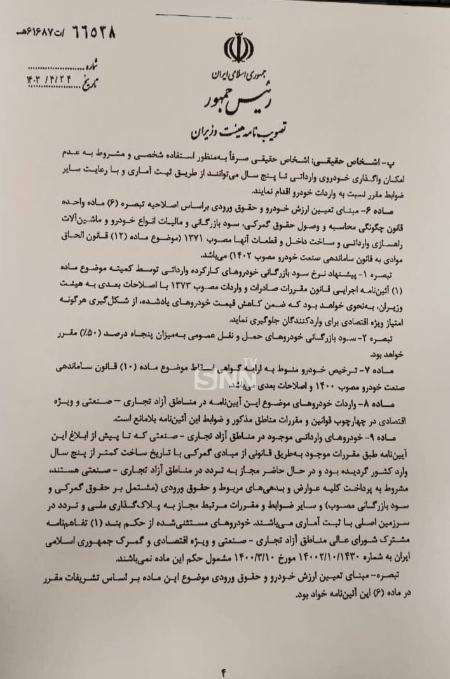 ۶۶۵۳۸/ت۶۱۶۸۷هـ
شماره
تاریخ ۱۴۰۳/۴/۲۴
جمهوری اسلامی ایران
رئیس جمهور
تصویب نامه هیئت وزیران
پ- اشخاص حقیقی: اشخاص حقیقی صرفاً به‌منظور استفاده شخصی و مشروط به عدم
امکان واگذاری خودروی وارداتی تا پنج سال می‌توانند از طریق ثبت آماری و با رعایت سایر
ضوابط مقرر نسبت به واردات خودرو اقدام نمایند.
ماده ۶- مبنای تعیین ارزش خودرو و حقوق ورودی براساس اصلاحیه تبصره (۶) ماده واحده
قانون چگونگی محاسبه و وصول حقوق گمرکی، سود بازرگانی و مالیات انواع خودرو و ماشین‌آلات
راهسازی وارداتی و ساخت داخل و قطعات آنها مصوب ۱۳۷۱ (موضوع ماده (۱۲) قانون الحاق
موادی به قانون ساماندهی صنعت خودرو مصوب ۱۴۰۲) می‌باشد.
تبصره ۱- پیشنهاد نرخ سود بازرگانی خودروهای کارکرده وارداتی توسط کمیته موضوع ماده
(۱) آئین‌نامه اجرایی قانون مقررات صادرات و واردات مصوب ۱۳۷۳ با اصلاحات بعدی به هیئت
وزیران، به‌نحوی خواهد بود که ضمن کاهش قیمت خودروهای یادشده، از شکل‌گیری هرگونه
امتیاز ویژه اقتصادی برای واردکنندگان جلوگیری نماید.
تبصره ۲- سود بازرگانی خودروهای حمل و نقل عمومی به‌میزان پنجاه درصد (۵۰٪) مقرر
خواهد بود.
ماده ۷- ترخیص خودرو منوط به ارایه گواهی اسقاط موضوع ماده (۱۰) قانون ساماندهی
صنعت خودرو مصوب ۱۴۰۰ و اصلاحات بعدی می‌باشد.
ماده ۸- واردات خودروهای موضوع این آیین‌نامه در مناطق آزاد تجاری – صنعتی و ویژه
اقتصادی در چهارچوب قوانین و مقررات مناطق مذکور و ضوابط این آئین‌نامه بلامانع است.
ماده ۹- خودروهای وارداتی موجود در مناطق آزاد تجاری - صنعتی که تا پیش از ابلاغ این
آیین‌نامه طبق مقررات موجود به‌طریق قانونی از مبادی گمرکی با تاریخ ساخت کمتر از پنج سال
وارد کشور گردیده بود و در حال حاضر مجاز به تردد در مناطق آزاد تجاری - صنعتی هستند،
مشروط به پرداخت کلیه عوارض و بدهی‌های مربوط و حقوق ورودی (مشتمل بر حقوق گمرکی و
سود بازرگانی مصوب) و سایر ضوابط و مقررات مرتبط مجاز به پلاک‌گذاری ملی و تردد در
سرزمین اصلی با ثبت آماری می‌باشند. خودروهای مستثنی‌شده از حکم بند (۱) تفاهم‌نامه
مشترک شورای عالی مناطق آزاد تجاری - صنعتی و ویژه اقتصادی و گمرک جمهوری اسلامی
ایران به شماره ۱۴۰۰۲/۱۰/۱۴۳۰ مورخ ۱۴۰۰/۳/۱۰ مشمول حکم این ماده نمی‌باشند.
تبصره- مبنای تعیین ارزش خودرو و حقوق ورودی موضوع این ماده بر اساس تشریفات مقرر
در ماده (۶) این آئین‌نامه خواد بود.
SNN TV
۴